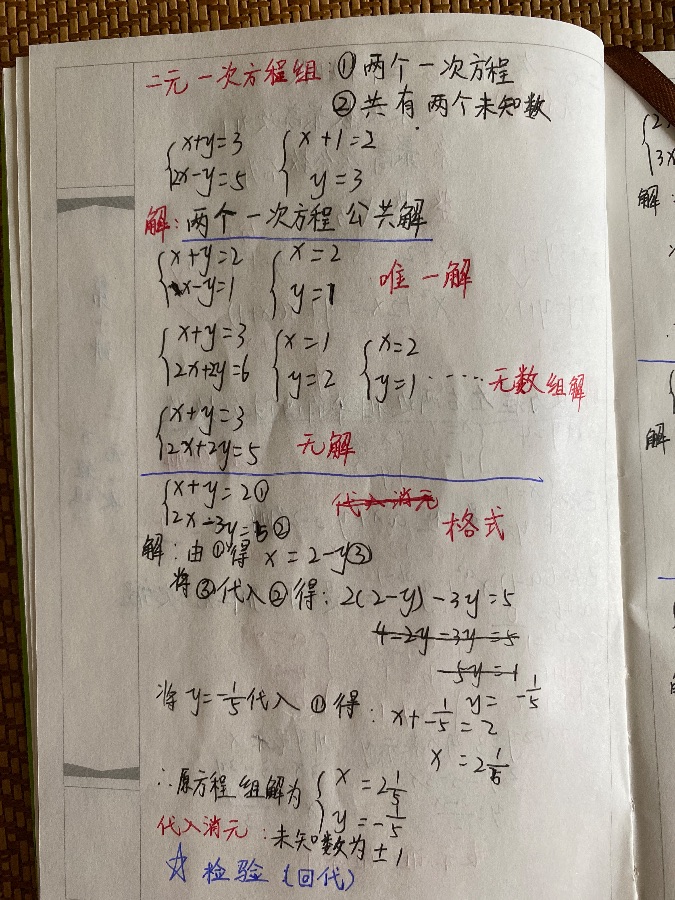 二元一次方程组:①两个一次方程
②共有两个未知数
{x+y=3 2x-y=5 {x+1=2 y=3
解:两个一次方程公共解
{x+y=2 x-y=1 {x=2 y=1 唯一解
{x+y=3 2x+2y=6 {x=1 y=2 {x=2 y=1 ······无数组解
{x+y=3 2x+2y=5 无解
{x+y=2① 2x-3y=5② 代入消元 格式
解:由①得 x=2-y③
将③代入②得:2(2-y)-3y=5
4-2y-3y=5
-5y=1
y=-1/5
将y=-1/5代入①得:x+-1/5=2
x=2 1/5
∴原方程组解为{x=2 1/5 y=-1/5
代入消元:未知数为±1
☆检验(回代)
解:
解